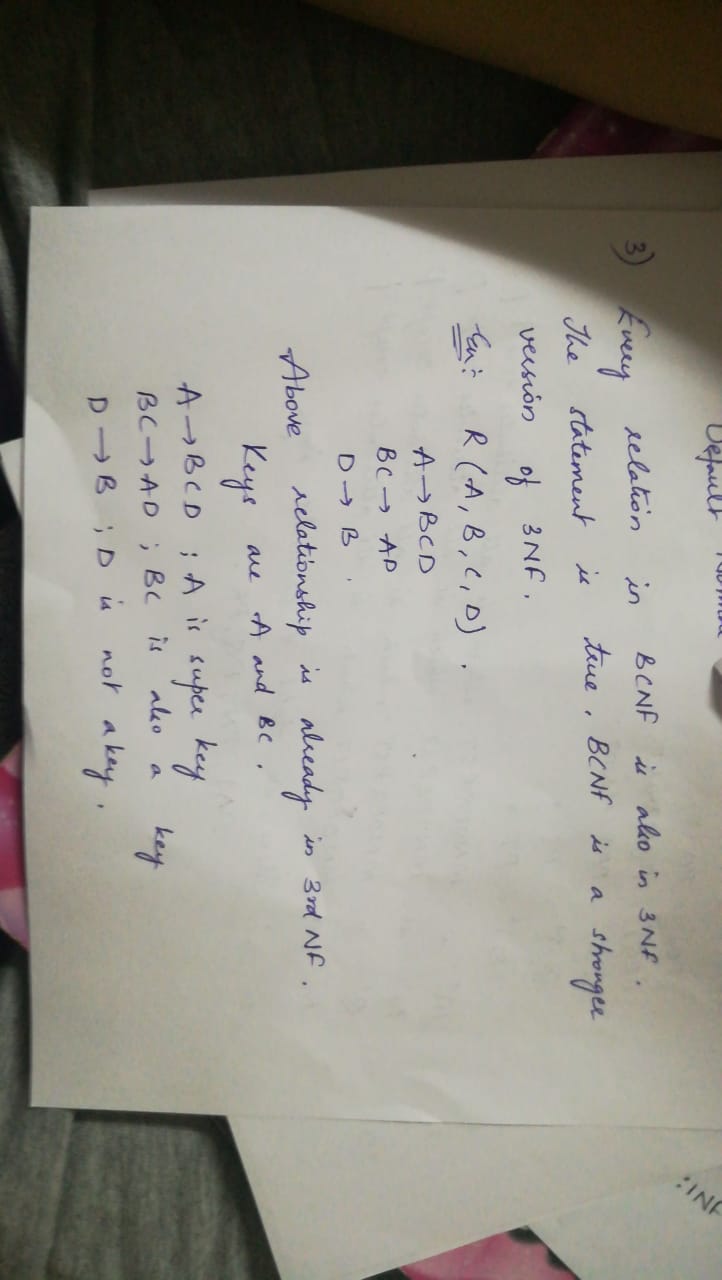 Default
3) Every relation in BCNF is also in 3NF.
The statement is true, BCNF is a stronger
version of 3NF.
Ex:- R(A,B,C,D).
A→BCD
BC→AD
D→B.
Above relationship is already in 3rd NF.
Keys are A and BC.
A→BCD ; A is super key
BC→AD ; BC is also a key
D→B ; D is not a key.